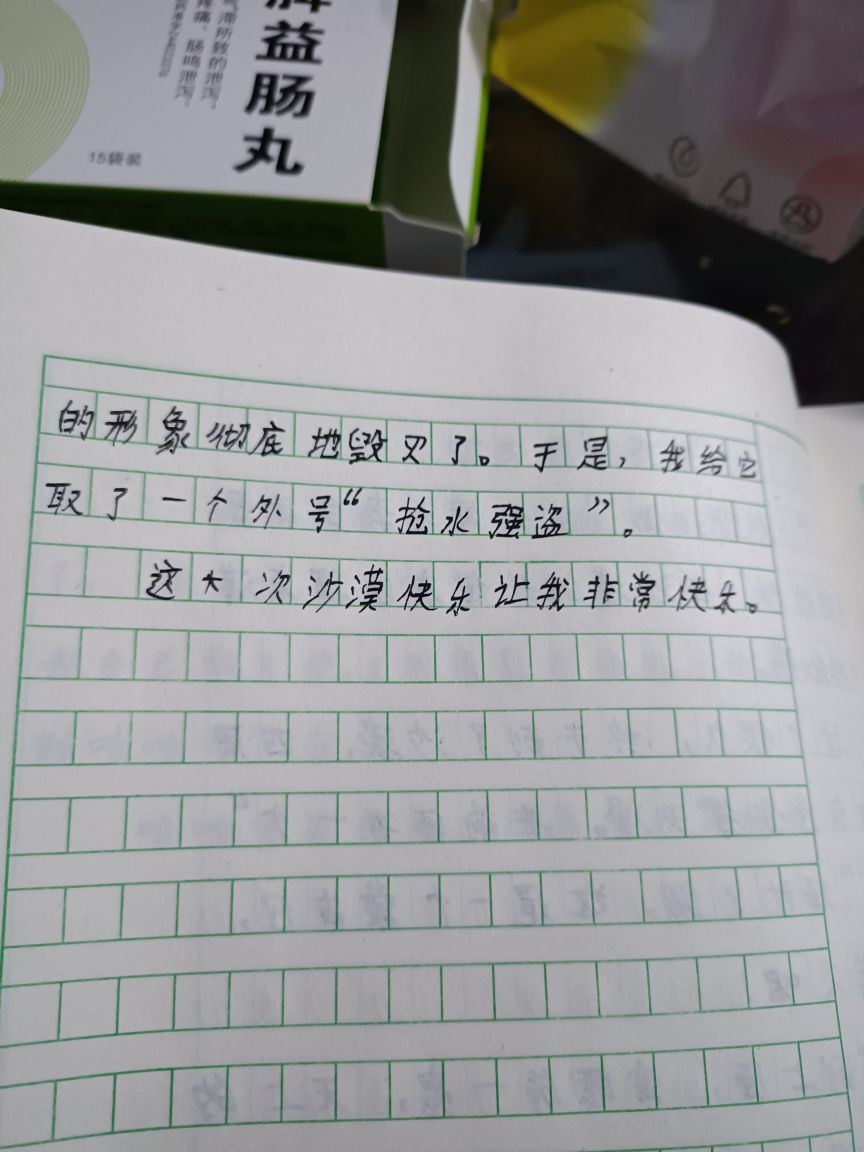 益肠丸
气滞所致的泄泻，
疼痛、肠鸣泄泻，
15袋装
的形象彻底地毁灭了。于是，我给它
取了一个外号“抢水强盗”。
这大次沙漠快乐让我非常快乐。